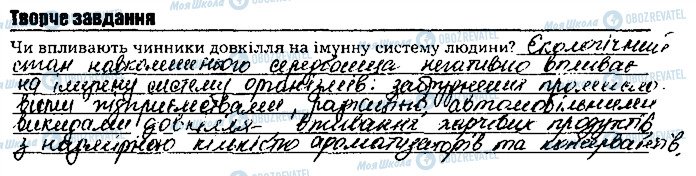 Творче завдання
Чи впливають чинники довкілля на імунну систему людини? Екологічний
стан навколишнього середовища негативно впливає
на імунну систему організмів: забруднення промисло-
вими підприємствами, автомобільними
викидами довкілля вживання харчових продуктів
з надмірною кількістю ароматизаторів та консервантів.